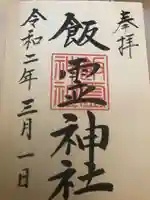 奉拝
飯霊神社
令和二年三月一日